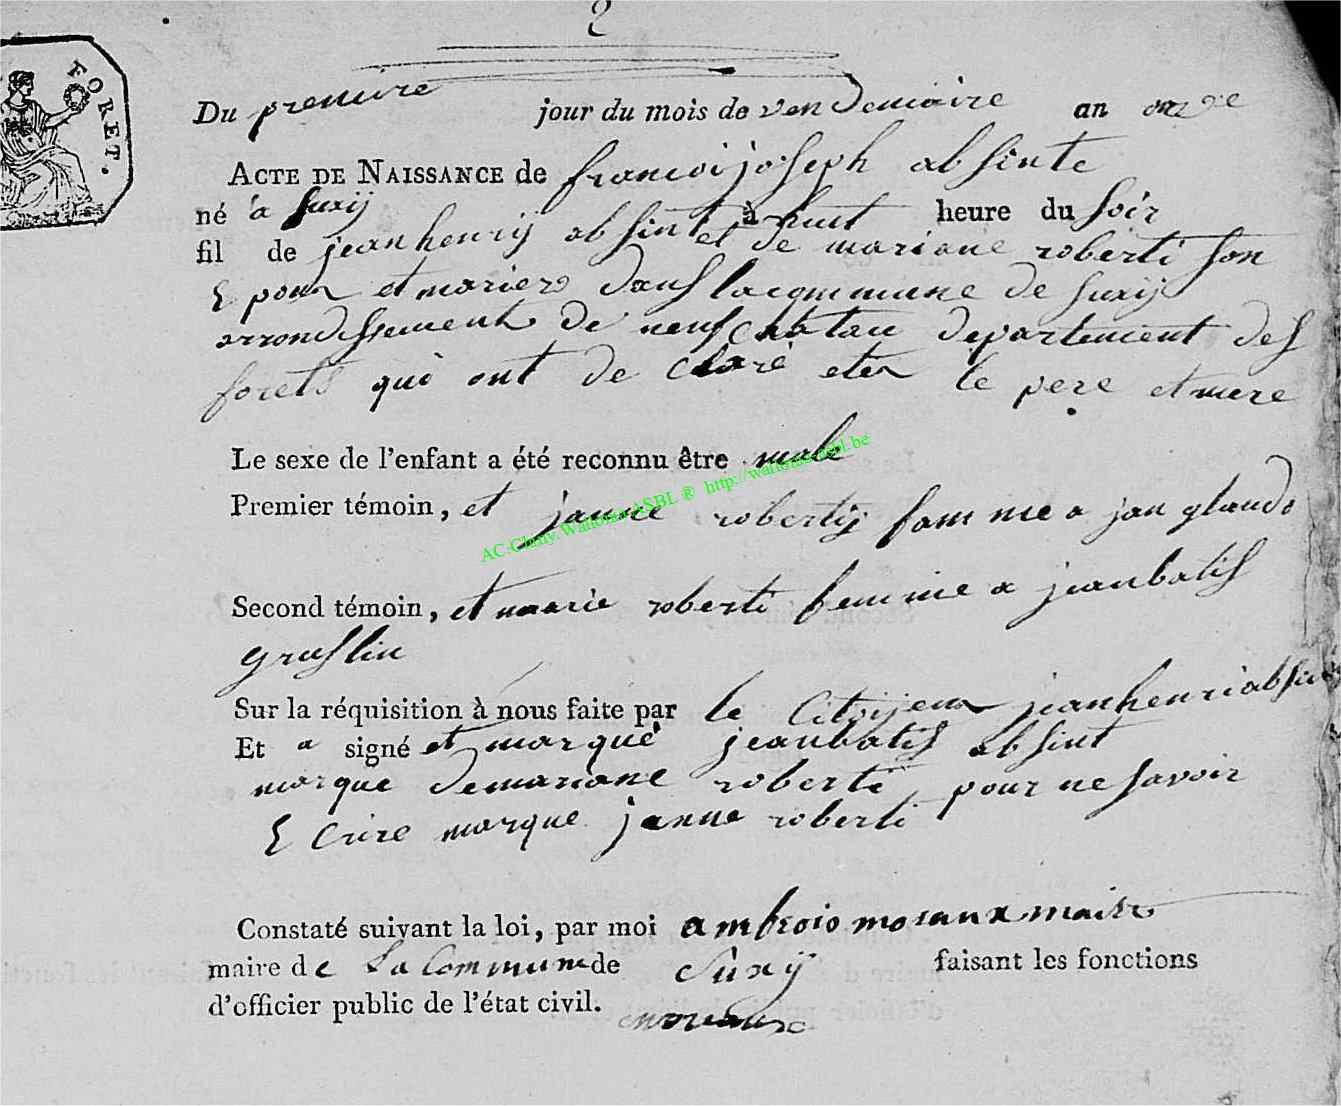 2
FORET.
Du premire jour du mois de vendemaire an onze
ACTE DE NAISSANCE de francoi joseph absinte
né a suxij à huit heure du soir
fil de jean henrij absint et de mariane roberti son
Epoux et mariez dans la commune de suxij
arrondissement de neufchatau departement des
forets qui ont de claré eter le pere et mere
Le sexe de l'enfant a été reconnu être male
Premier témoin, et janne robertij famme a jan glaudo
Second témoin, et marie roberti femme a jeanbatis
graslin
Sur la réquisition à nous faite par le Citoijen jeanhenri absin
Et a signé et marqué jeanbatis absint
marque demariane roberti pour ne savoir
Ecrire marque janne roberti
Constaté suivant la loi, par moi ambroio moraux maire
maire de La Commune de Suxij faisant les fonctions
d'officier public de l'état civil.
moraux
AC-Chiny. Wallonia ASBL ® http://wallonia-asbl.be